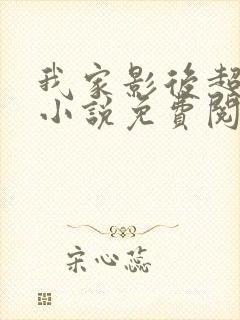 我家影後超
小說免費閱
宋心蕊